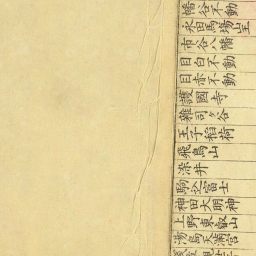 幡谷不動
永田馬場山王
市谷八幡
目白不動
目赤不動
護國寺
雜司ヶ谷
王子稲荷
飛鳥山
染井
駒込富士
神田大明神
上野東叡山
湯島天満宮